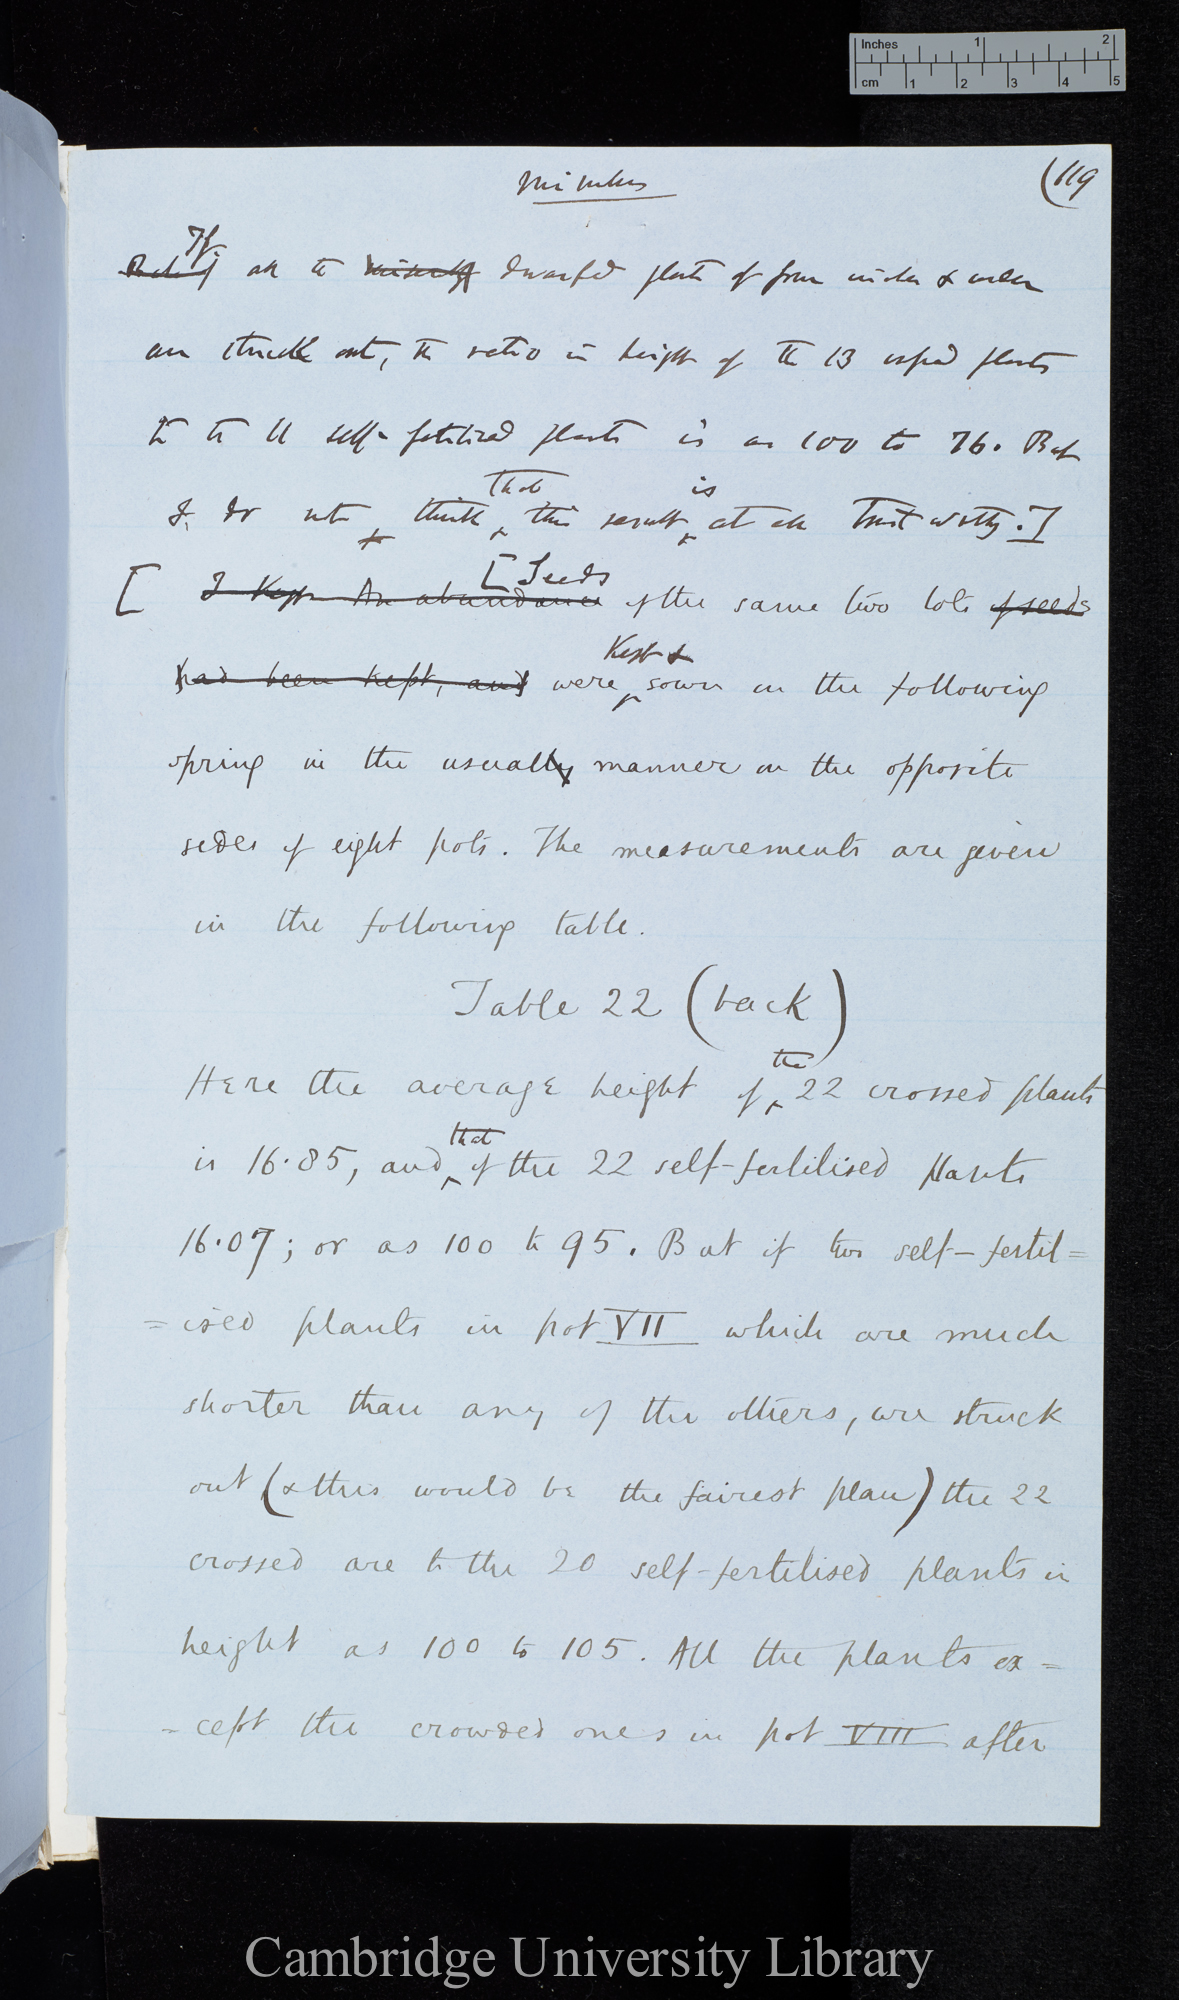 Inches 1 2
cm 1 2 3 4 5
Mimulus (119
If
all the dwarfed plants of four inches & under
are struck out, the ratio in height of the 13 crossed plants
to the 11 self-fertilised plants is as 100 to 76. But
that is
I do not think this result at all trustworthy.]
[Seeds
[ I kept An abundance of the same two lots of seeds
Kept &
had been kept, and were sown in the following
spring in the usually manner on the opposite
sides of eight pots. The measurements are given
in the following table.
Table 22 (back)
the
Here the average height of 22 crossed plants
that
is 16·85, and of the 22 self-fertilised plants
16·07; or as 100 to 95. But if two self-fertil=
=ised plants in pot VII which are much
shorter than any of the others, are struck
out (& this would be the fairest plan) the 22
crossed are to the 20 self-fertilised plants in
height as 100 to 105. All the plants ex=
=cept the crowded ones in pot VIII after
Cambridge University Library